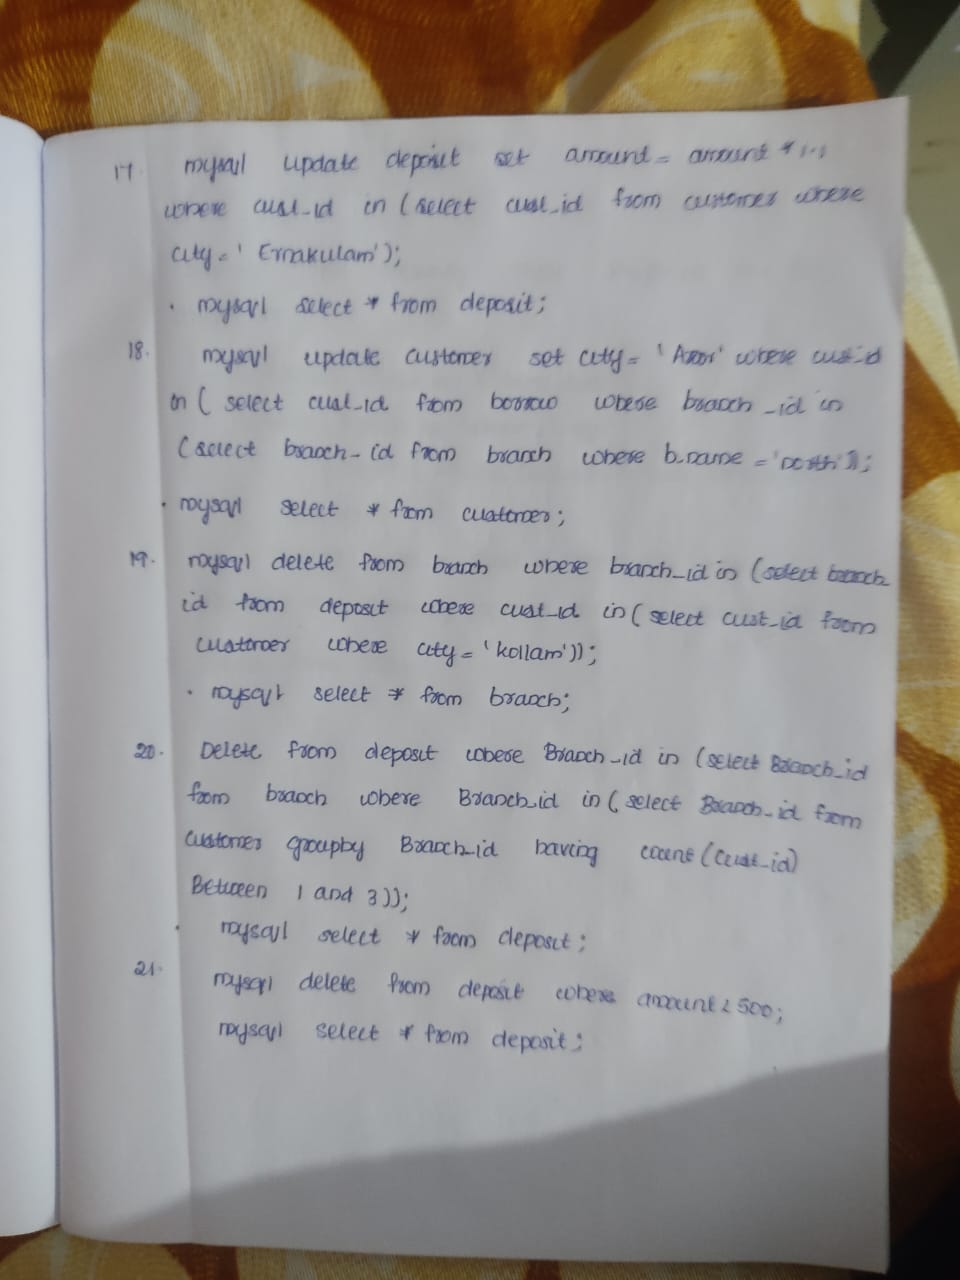 17. mysql update deposit set amount = amount * 1.1
where cust_id in (select cust_id from customer where
city = 'Ernakulam');
· mysql select * from deposit;
18. mysql update customer set city = where cust_id
in ( select cust_id from borrow where branch_id in
(select branch_id from branch where b.name = 'north'));
· mysql select * from customer;
19. mysql delete from branch where branch_id in (select branch_
id from deposit where cust_id in ( select cust_id from
customer where city = 'kollam'));
· mysql select * from branch;
20. Delete from deposit where Branch_id in (select Branch_id
from branch where Branch_id in ( select Branch_id from
customer groupby Branch_id having count (cust_id)
Between 1 and 3));
· mysql select * from deposit;
21. mysql delete from deposit where amount < 500;
mysql select * from deposit;